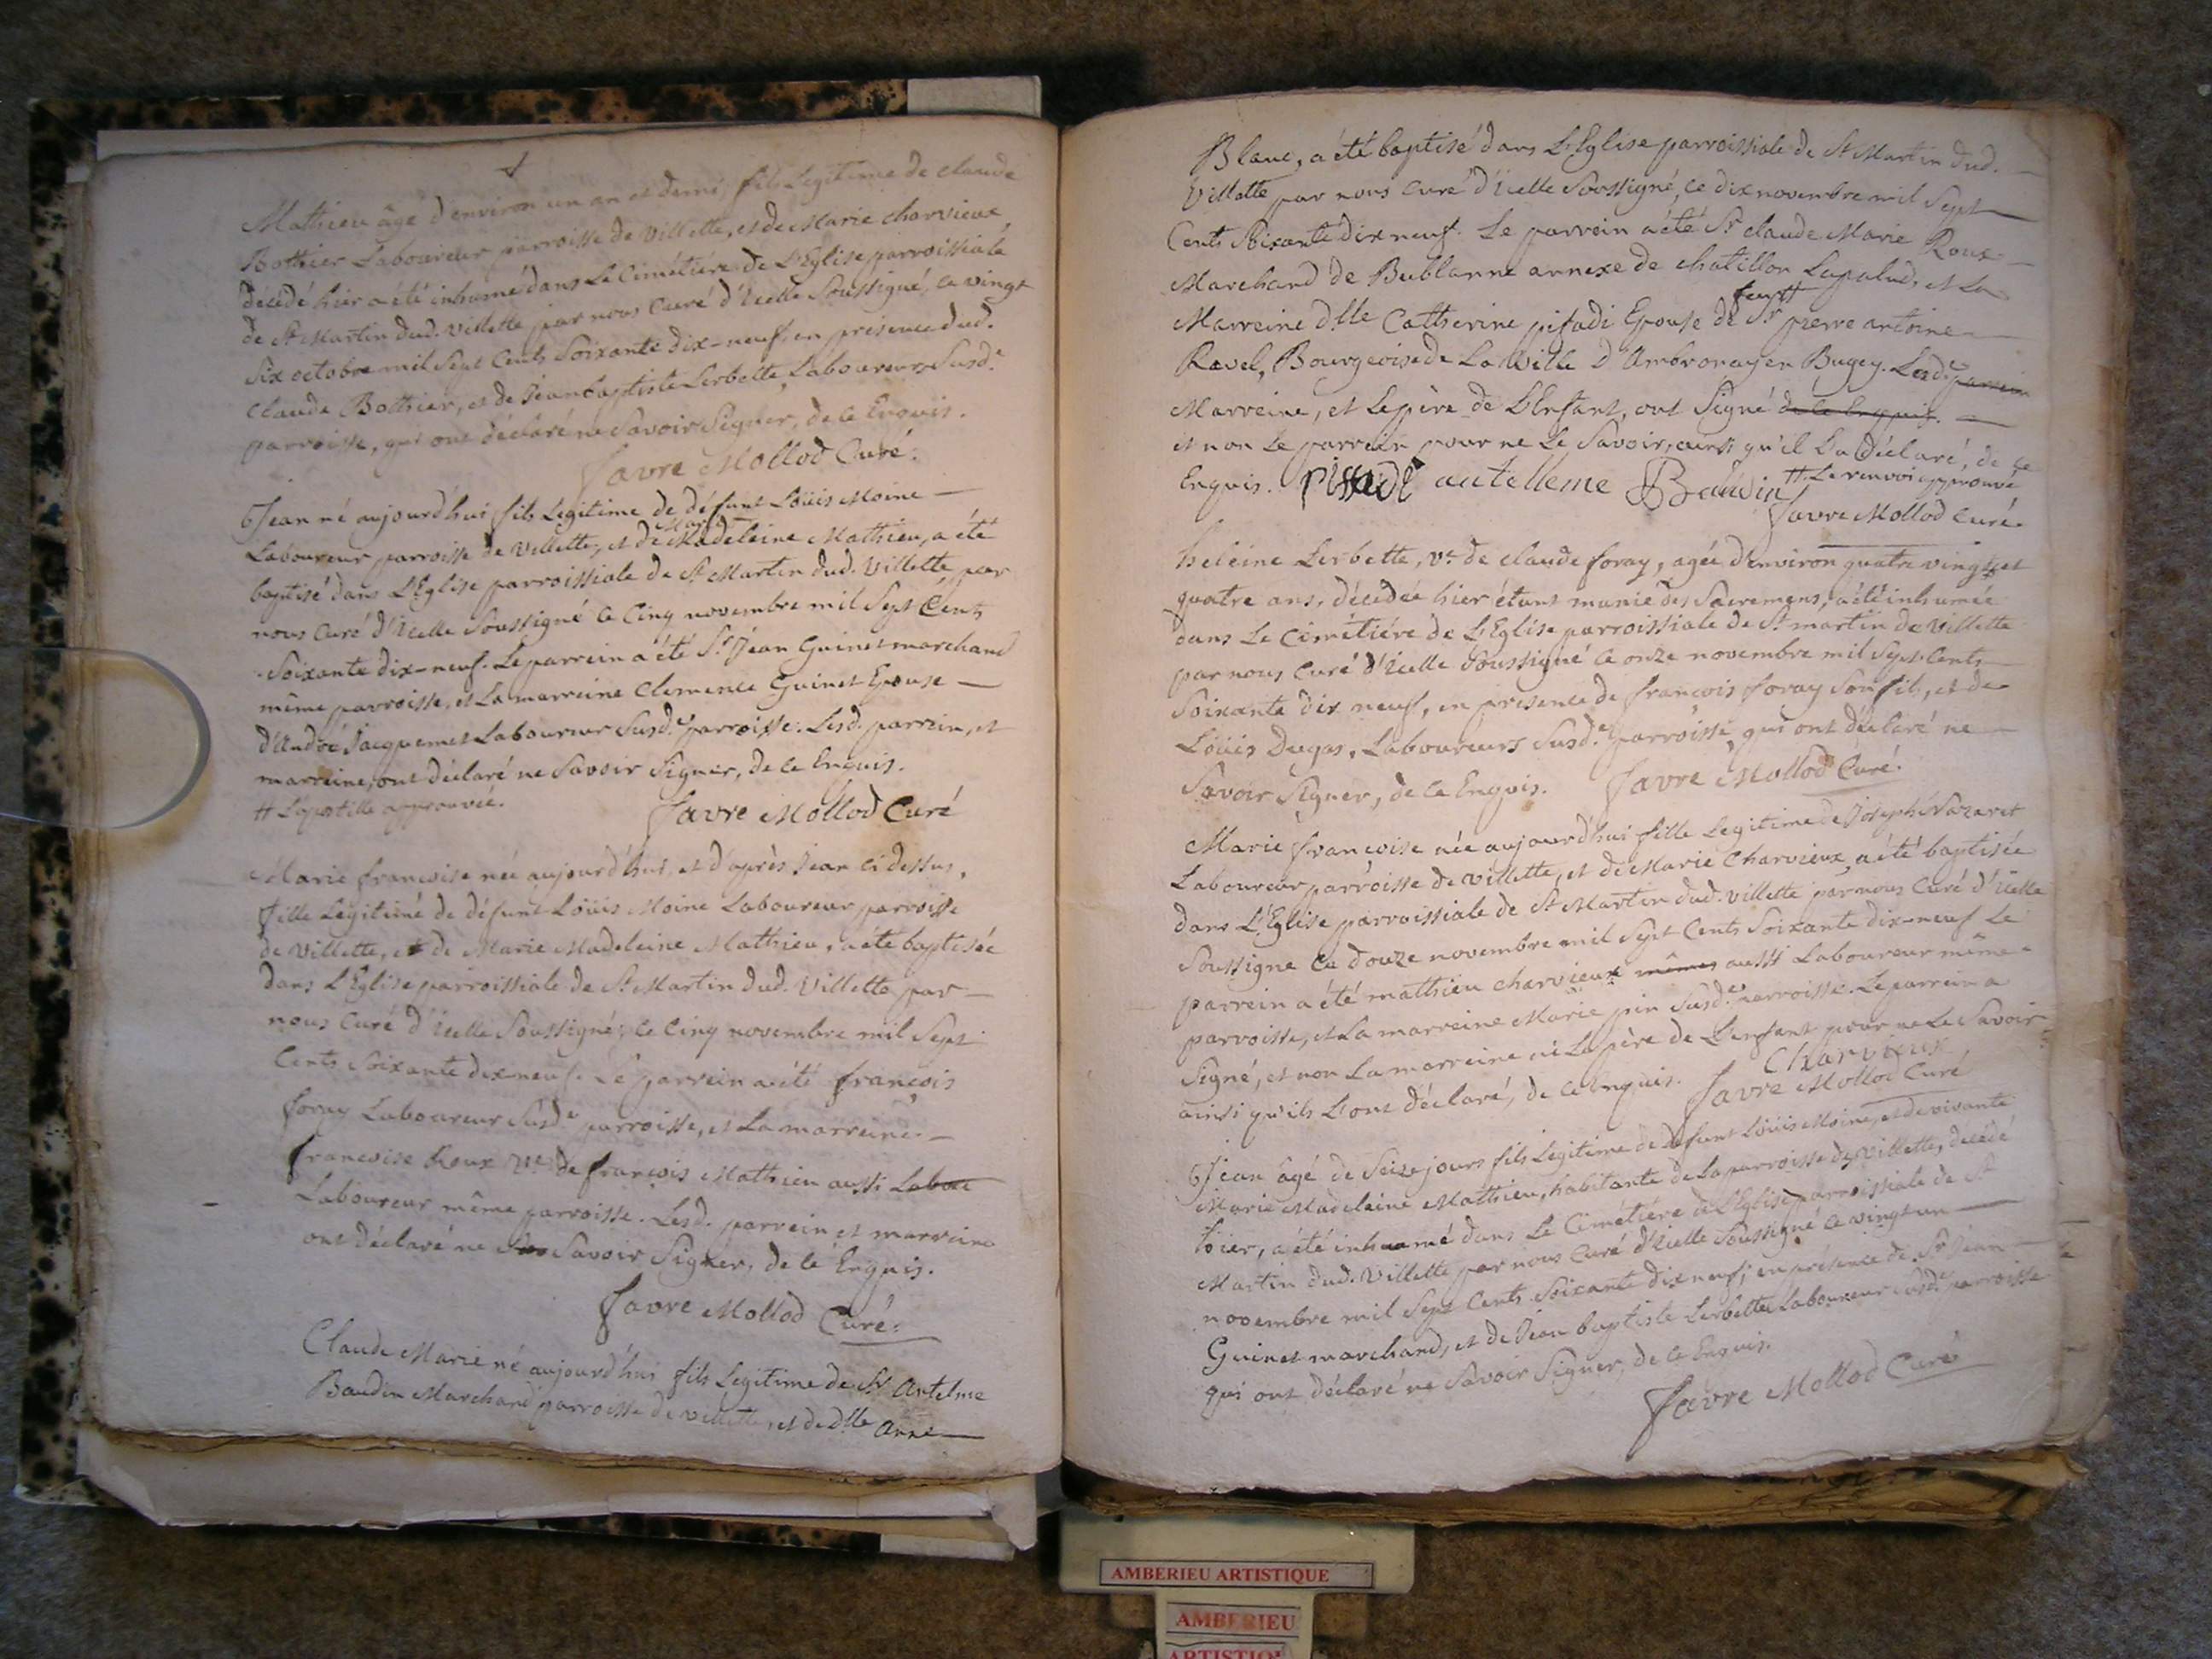 Mathieu âgé d'environ un an et demi, fils Legitime de claude
Bottier Laboureur parroisse de Villette, et de Marie charvieux,
décédé hier a été inhumé dans Le Cimétiére de L'Eglise parroissiale
de St Martin dud. Villette par nous Curé d'Icelle Soussigné, ce vingt
Six octobre mil Sept Cents Soixante dix-neuf, en présence dud.
Claude Bottier, et de Jean baptiste Lerbette, Laboureurs Susd.e
parroisse, qui ont déclaré ne Savoir Signer, de ce Enquis.
Favre Mollod Curé.
Jean né aujourd'hui fils Legitime de défunt Loüis Moine —
Laboureur parroisse de Villette, et de Marie Madeleine Mathieu, a été
baptisé dans L'Eglise parroissiale de St Martin dud. Villette par
nous Curé d'Icelle Soussigné le Cinq novembre mil Sept Cents
Soixante dix-neuf. Le parrein a été Sr Jean Guinet marchand
même parroisse, et La marreine Clemence Guinet Epouse —
d'André Jacquemet Laboureur Susd.e parroisse. Lesd. parrein, et
marreine, ont déclaré ne Savoir Signer, de ce Enquis.
# Lapostille approuvée.
Favre Mollod Curé
Marie francoise née aujourd'hui, et d'après Jean ci dessus,
fille Legitime de défunt Loüis Moine Laboureur parroisse
de Villette, et de Marie Madeleine Mathieu, a été baptisée
dans L'Eglise parroissiale de St Martin dud. Villette par —
nous Curé d'Icelle Soussigné, le Cinq novembre mil Sept
Cents Soixante dix neuf. Le parrein a été françois
foray Laboureur Susd.e parroisse, et La marreine —
francoise Roux Ve de françois Mathieu aussi Labou
Laboureur même parroisse. Lesd. parrein et marreine
ont déclaré ne Savoir Signer, de ce Enquis.
Favre Mollod Curé.
Claude Marie né aujourd'hui fils Legitime de Sr Antelme
Baudin Marchand parroisse de Villette, et de Dlle Anne —
Blanc, a été baptisé dans L'Eglise parroissiale de St Martin dud. —
Villette par nous Curé d'Icelle Soussigné, ce dix novembre mil Sept —
Cents Soixante dix neuf. Le parrein a été Sr claude Marie Roux —
Marchand de Bublanne annexe de chatillon Lapalud, et La
Marreine dlle Catherine pifadi Epouse de feu # Sr pierre antoine —
Ravel, Bourgeoise de La Ville d'Ambronay en Bugey. Lesd. parrein
Marreine, et Le père de L'Enfant, ont Signé de ce Enquis. —
et non Le parrein pour ne Le Savoir, ainsi qu'il L'a déclaré, de ce
Enquis. autelleme Baudin # Le renvoi approuvé
Favre Mollod Curé.
heleine Lerbette, Ve de claude foray, agée d'Environ quatre vingts et
quatre ans, décédée hier étant munie des Sacremens, a été inhumée
dans Le Cimétiére de L'Eglise parroissiale de St martin de Villette
par nous Curé d'Icelle Soussigné ce onze novembre mil Sept Cents —
Soixante dix neuf, en présence de françois foray Son fils, et de
Loüis Dugas, Laboureurs Susd.e parroisse, qui ont déclaré ne —
Savoir Signer, de ce Enquis. Favre Mollod Curé.
Marie françoise née aujourd'hui fille Legitime de Joseph Nazaret
Laboureur parroisse de Villette, et de Marie Charvieux, a été baptisée
dans L'Eglise parroissiale de St Martin dud. Villette par nous Curé d'Icelle
Soussigné ce douze novembre mil Sept Cents Soixante dix-neuf Le
parrein a été mathieu charvieux mêmes aussi Laboureur même
parroisse, et La marreine Marie pin Susd.e parroisse. Le parrein a
Signé, et non La marreine ni Le père de L'enfant pour ne Le Savoir
ainsi qu'ils L'ont déclaré, de ce Enquis. Charvieux
Favre Mollod Curé
Jean âgé de Seize jours fils Légitime de défunt Loüis Moine, et de vivante
Marie Madeleine Mathieu, habitante de La parroisse de Villette, décédé
hier, a été inhumé dans Le Cimétiére de L'Eglise parroissiale de St
Martin dud. Villette par nous Curé d'Icelle Soussigné ce vingt un —
novembre mil Sept Cents Soixante dix neuf, en présence de Sr Jean —
Guinet marchand, et de Jean baptiste Lerbette Laboureur Susd.e parroisse
qui ont déclaré ne Savoir Signer, de ce Enquis.
Favre Mollod Curé
AMBERIEU ARTISTIQUE
AMBERIEU
ARTISTIQ